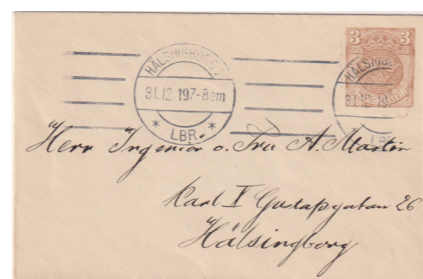 HÄLSINGBORG 1
31.12.19 7-8 em
* LBR. *
3 3
HÄLSINGB
31.12.19
LBR
Herr Ingeniör o. Fru A. Martin
Karl X Gustafsgatan 26
Hälsingborg